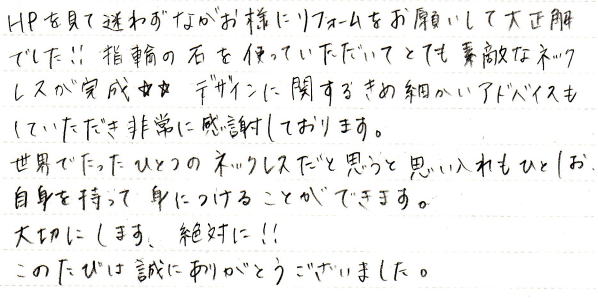 HPを見て迷わずながお様にリフォームをお願いして大正解
でした!! 指輪の石を使っていただいてとても素敵なネック
レスが完成☆☆ デザインに関するきめ細かいアドバイスも
していただき非常に感謝しております。
世界でたったひとつのネックレスだと思うと思い入れもひとしお。
自身を持って身につけることができます。
大切にします、絶対に!!
このたびは誠にありがとうございました。